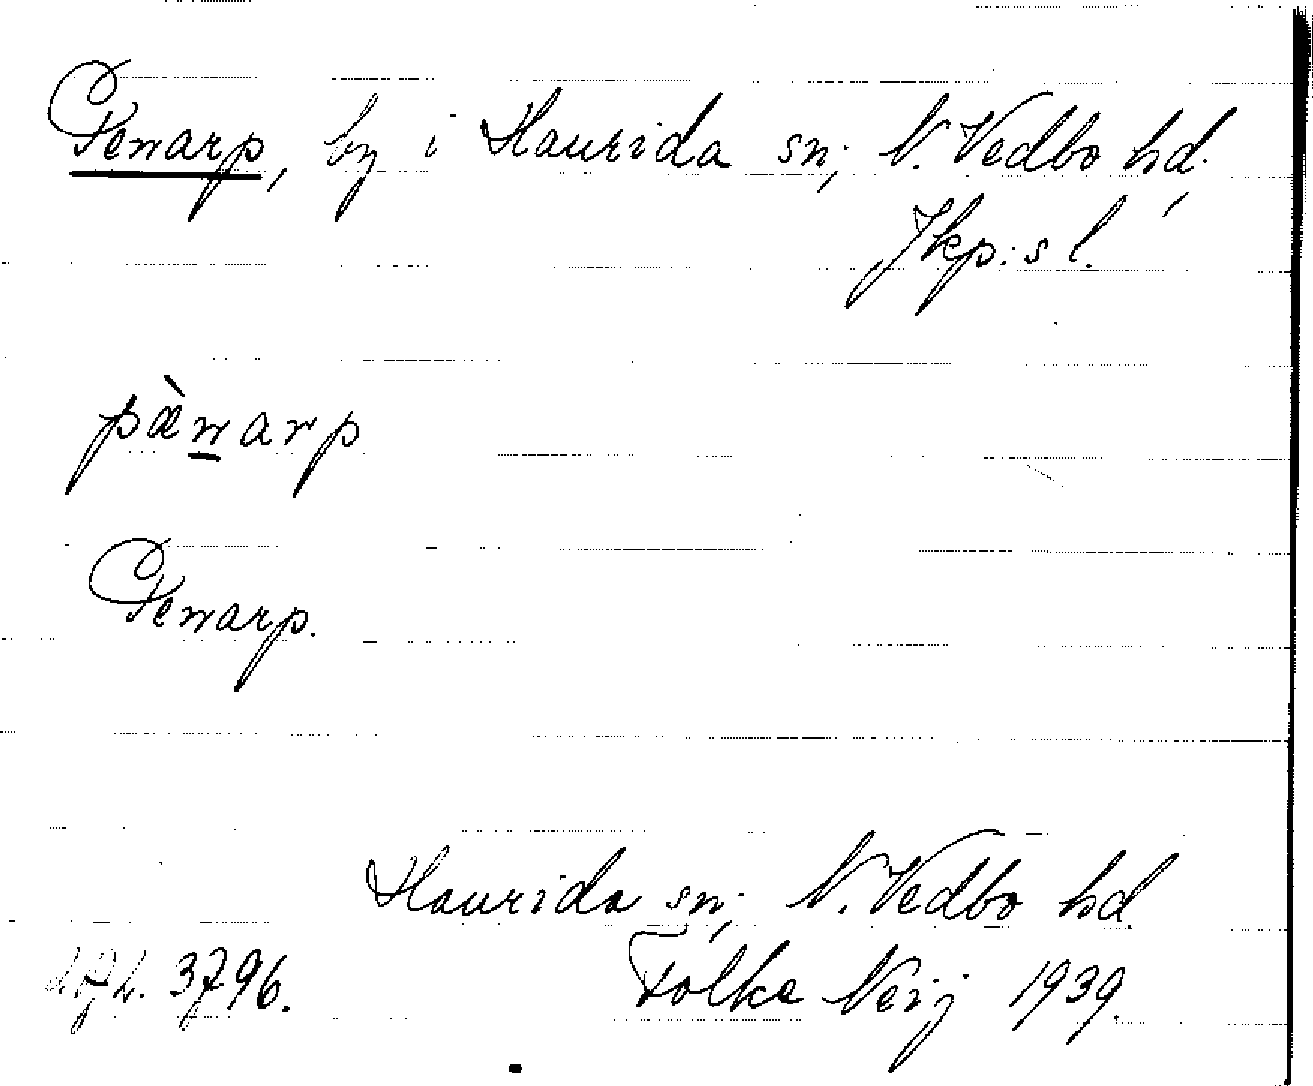 Penarp, by i Haurida sn; N. Vedbo hd.,
Jkp:s l.
pæ̀narp
Penarp.
Haurida sn; N. Vedbo hd.
3796. Folke Neij 1939.